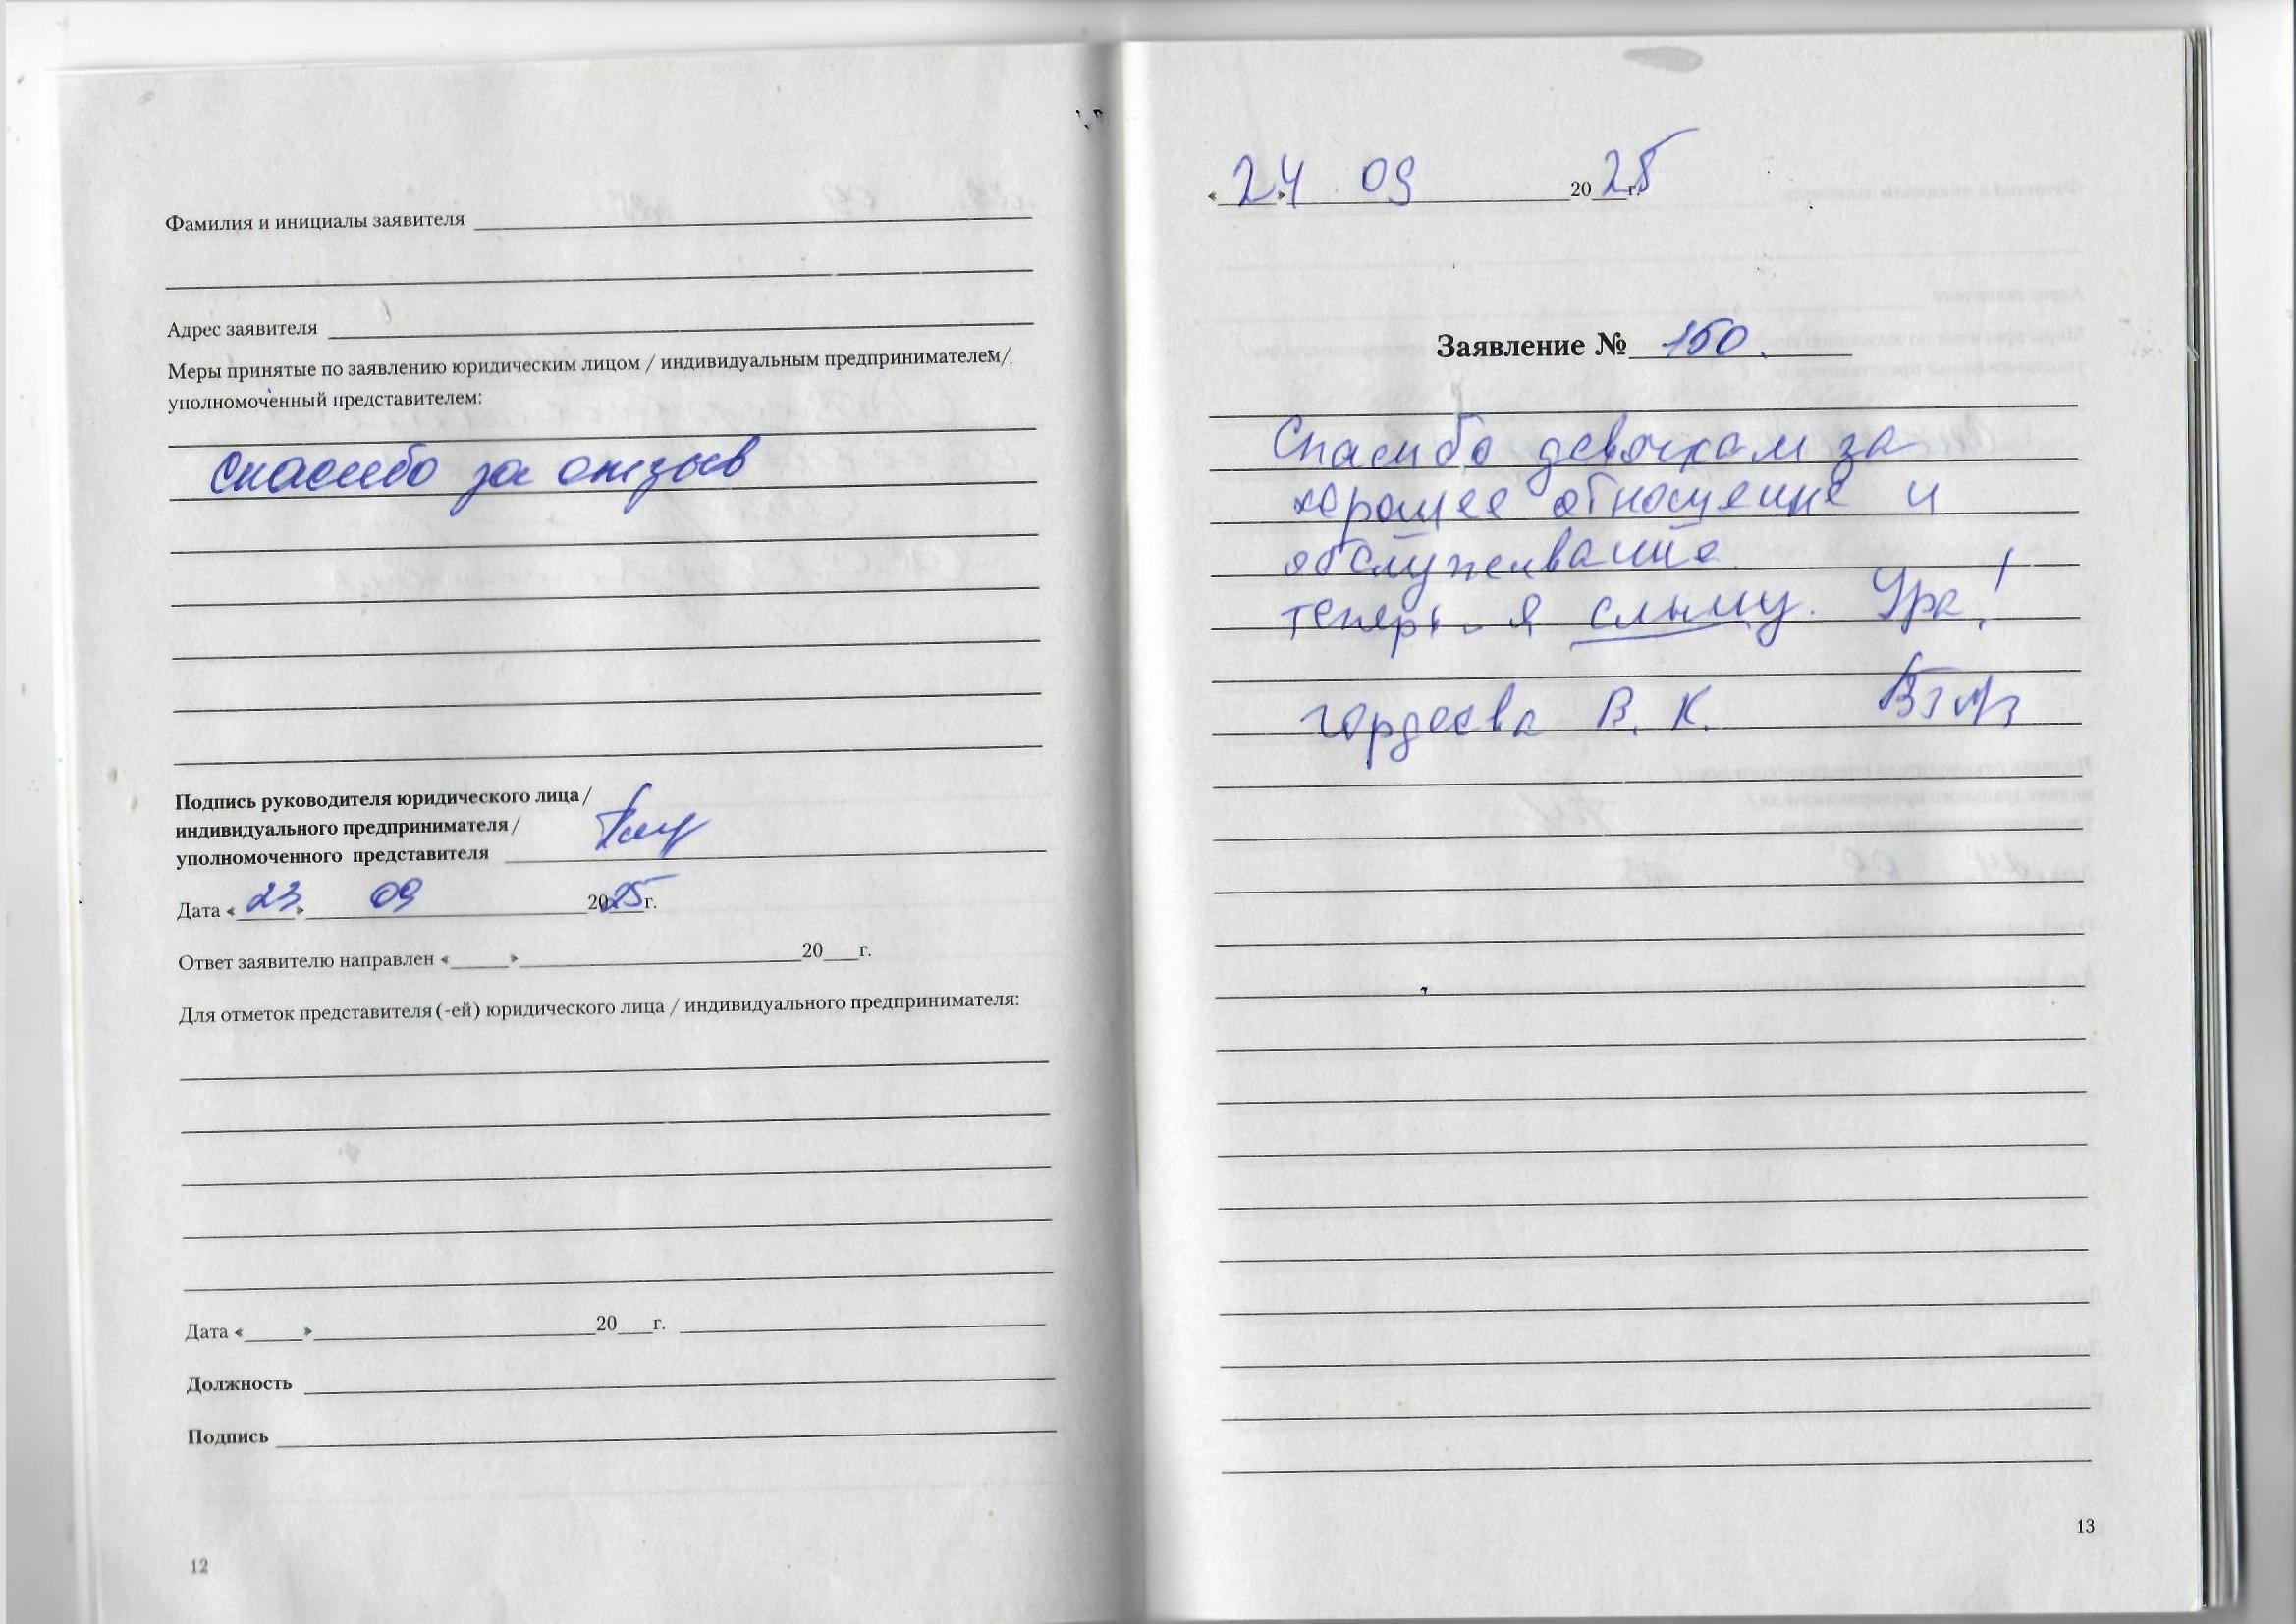 Фамилия и инициалы заявителя
Адрес заявителя
Меры принятые по заявлению юридическим лицом / индивидуальным предпринимателем/
уполномоченный представителем:
Спасибо за отзыв
Подпись руководителя юридического лица /
индивидуального предпринимателя /
уполномоченного представителя
Дата «23» 09 2025г.
Ответ заявителю направлен «____»____20__г.
Для отметок представителя (-ей) юридического лица / индивидуального предпринимателя:
Дата «____»____20__г.
Должность
Подпись
12
«24» 09 2025г.
Заявление № 150.
Спасибо девочкам за
хорошее отношение и
обслуживание.
теперь я слышу. Ура!
гордеева В. К.
13